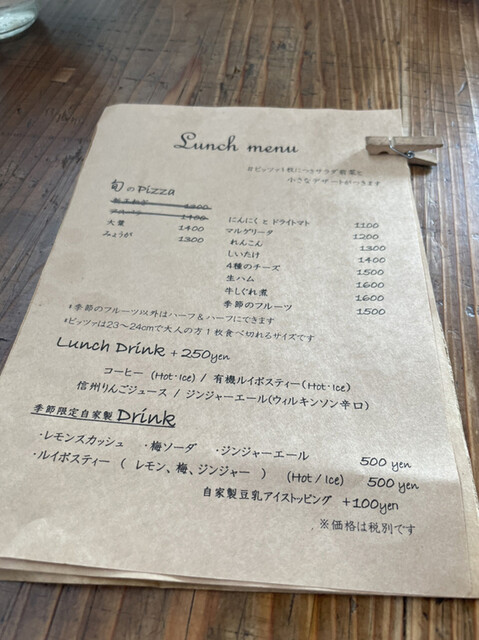 Lunch menu
※ピッツァ1枚につきサラダ前菜と
小さなデザートがつきます
旬のpizza
1400
大葉 1400
みょうが 1300
にんにくとドライトマト 1100
マルゲリータ 1200
れんこん 1300
しいたけ 1400
4種のチーズ 1500
生ハム 1600
牛しぐれ煮 1600
季節のフルーツ 1500
※季節のフルーツ以外はハーフ&ハーフにできます
※ピッツァは23〜24cmで大人の方1枚食べ切れるサイズです
Lunch Drink +250yen
コーヒー (Hot・Ice) / 有機ルイボスティー(Hot・Ice)
信州りんごジュース / ジンジャーエール(ウィルキンソン辛口)
季節限定自家製 Drink
・レモンスカッシュ ・梅ソーダ ・ジンジャーエール 500 yen
・ルイボスティー ( レモン、梅、ジンジャー ) (Hot / Ice) 500 yen
自家製豆乳アイストッピング +100yen
※価格は税別です